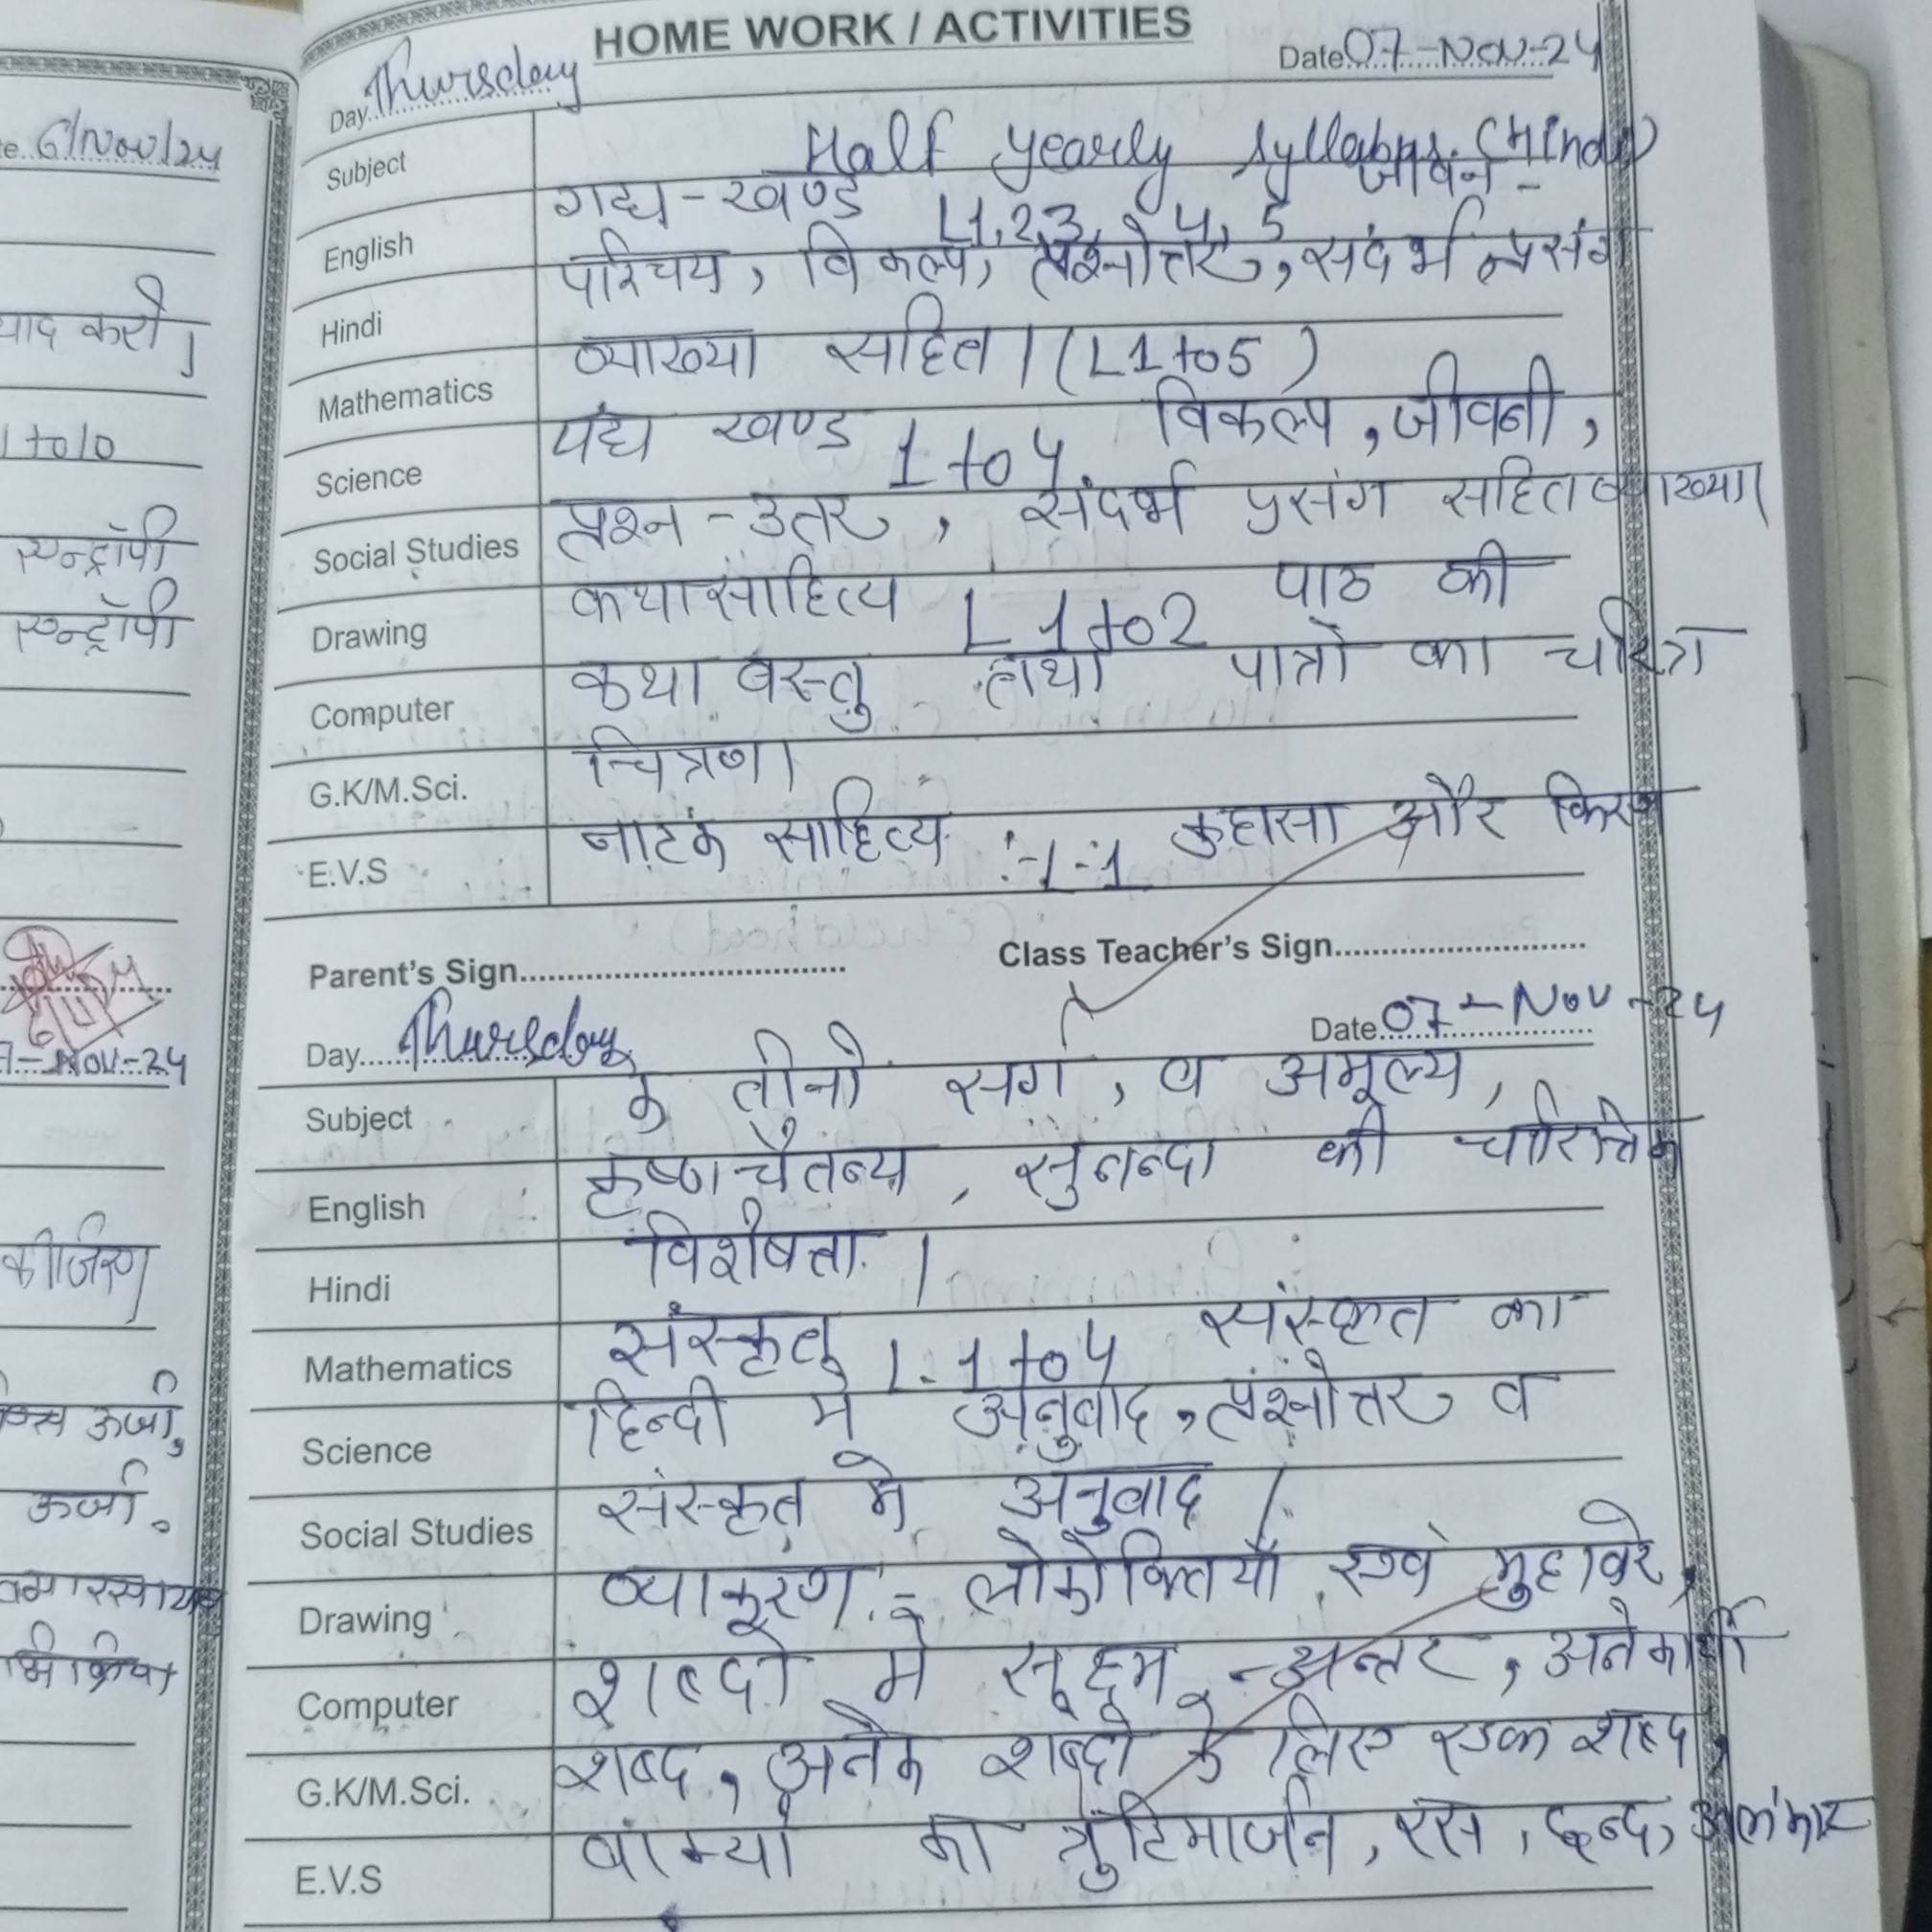 HOME WORK / ACTIVITIES
Day Thursday Date 07-Nov-24
Subject Half yearly syllabus. (Hindi)
गद्य-खण्ड L1,2,3, 4, 5 जीवन-
English
परिचय, विकल्प, प्रश्नोत्तर, संदर्भ प्रसंग
Hindi
व्याख्या सहित। (L1 to 5)
Mathematics
पद्य खण्ड 1 to 4 विकल्प, जीवनी,
Science
प्रश्न-उतर, संदर्भ प्रसंग सहित व्याख्या।
Social Studies
कथा साहित्य L 1 to 2 पाठ की
Drawing
कथा वस्तु तथा पात्रो का चरित्र
Computer
चित्रण।
G.K/M.Sci.
नाटक साहित्य :-L-1 कुहासा और किरण
E.V.S
Parent's Sign Class Teacher's Sign
Day Thursday Date 07-Nov-24
के तीनो सर्ग, व अमूल्य,
Subject
कृष्ण चैतन्य, सुनन्दा की चारित्रिक
English
विशेषता।
Hindi
संस्कृत L-1 to 4 संस्कृत का
Mathematics
हिन्दी मे अनुवाद, प्रश्नोत्तर व
Science
संस्कृत मे अनुवाद।
Social Studies
व्याकरण:- लोकोक्तियाँ एवं मुहावरे,
Drawing
शब्दो मे सूक्ष्म-अन्तर, अनेकार्थी
Computer
शब्द, अनेक शब्दो के लिए एक शब्द,
G.K/M.Sci.
वाक्यो का त्रुटिमार्जन, रस, छन्द, अलंकार
E.V.S
6/Nov/24
याद करो।
1 to 10
एन्ट्रॉपी
एन्ट्रॉपी
-Nov-24
कीजिए।
ऊर्जा,
ऊर्जा.